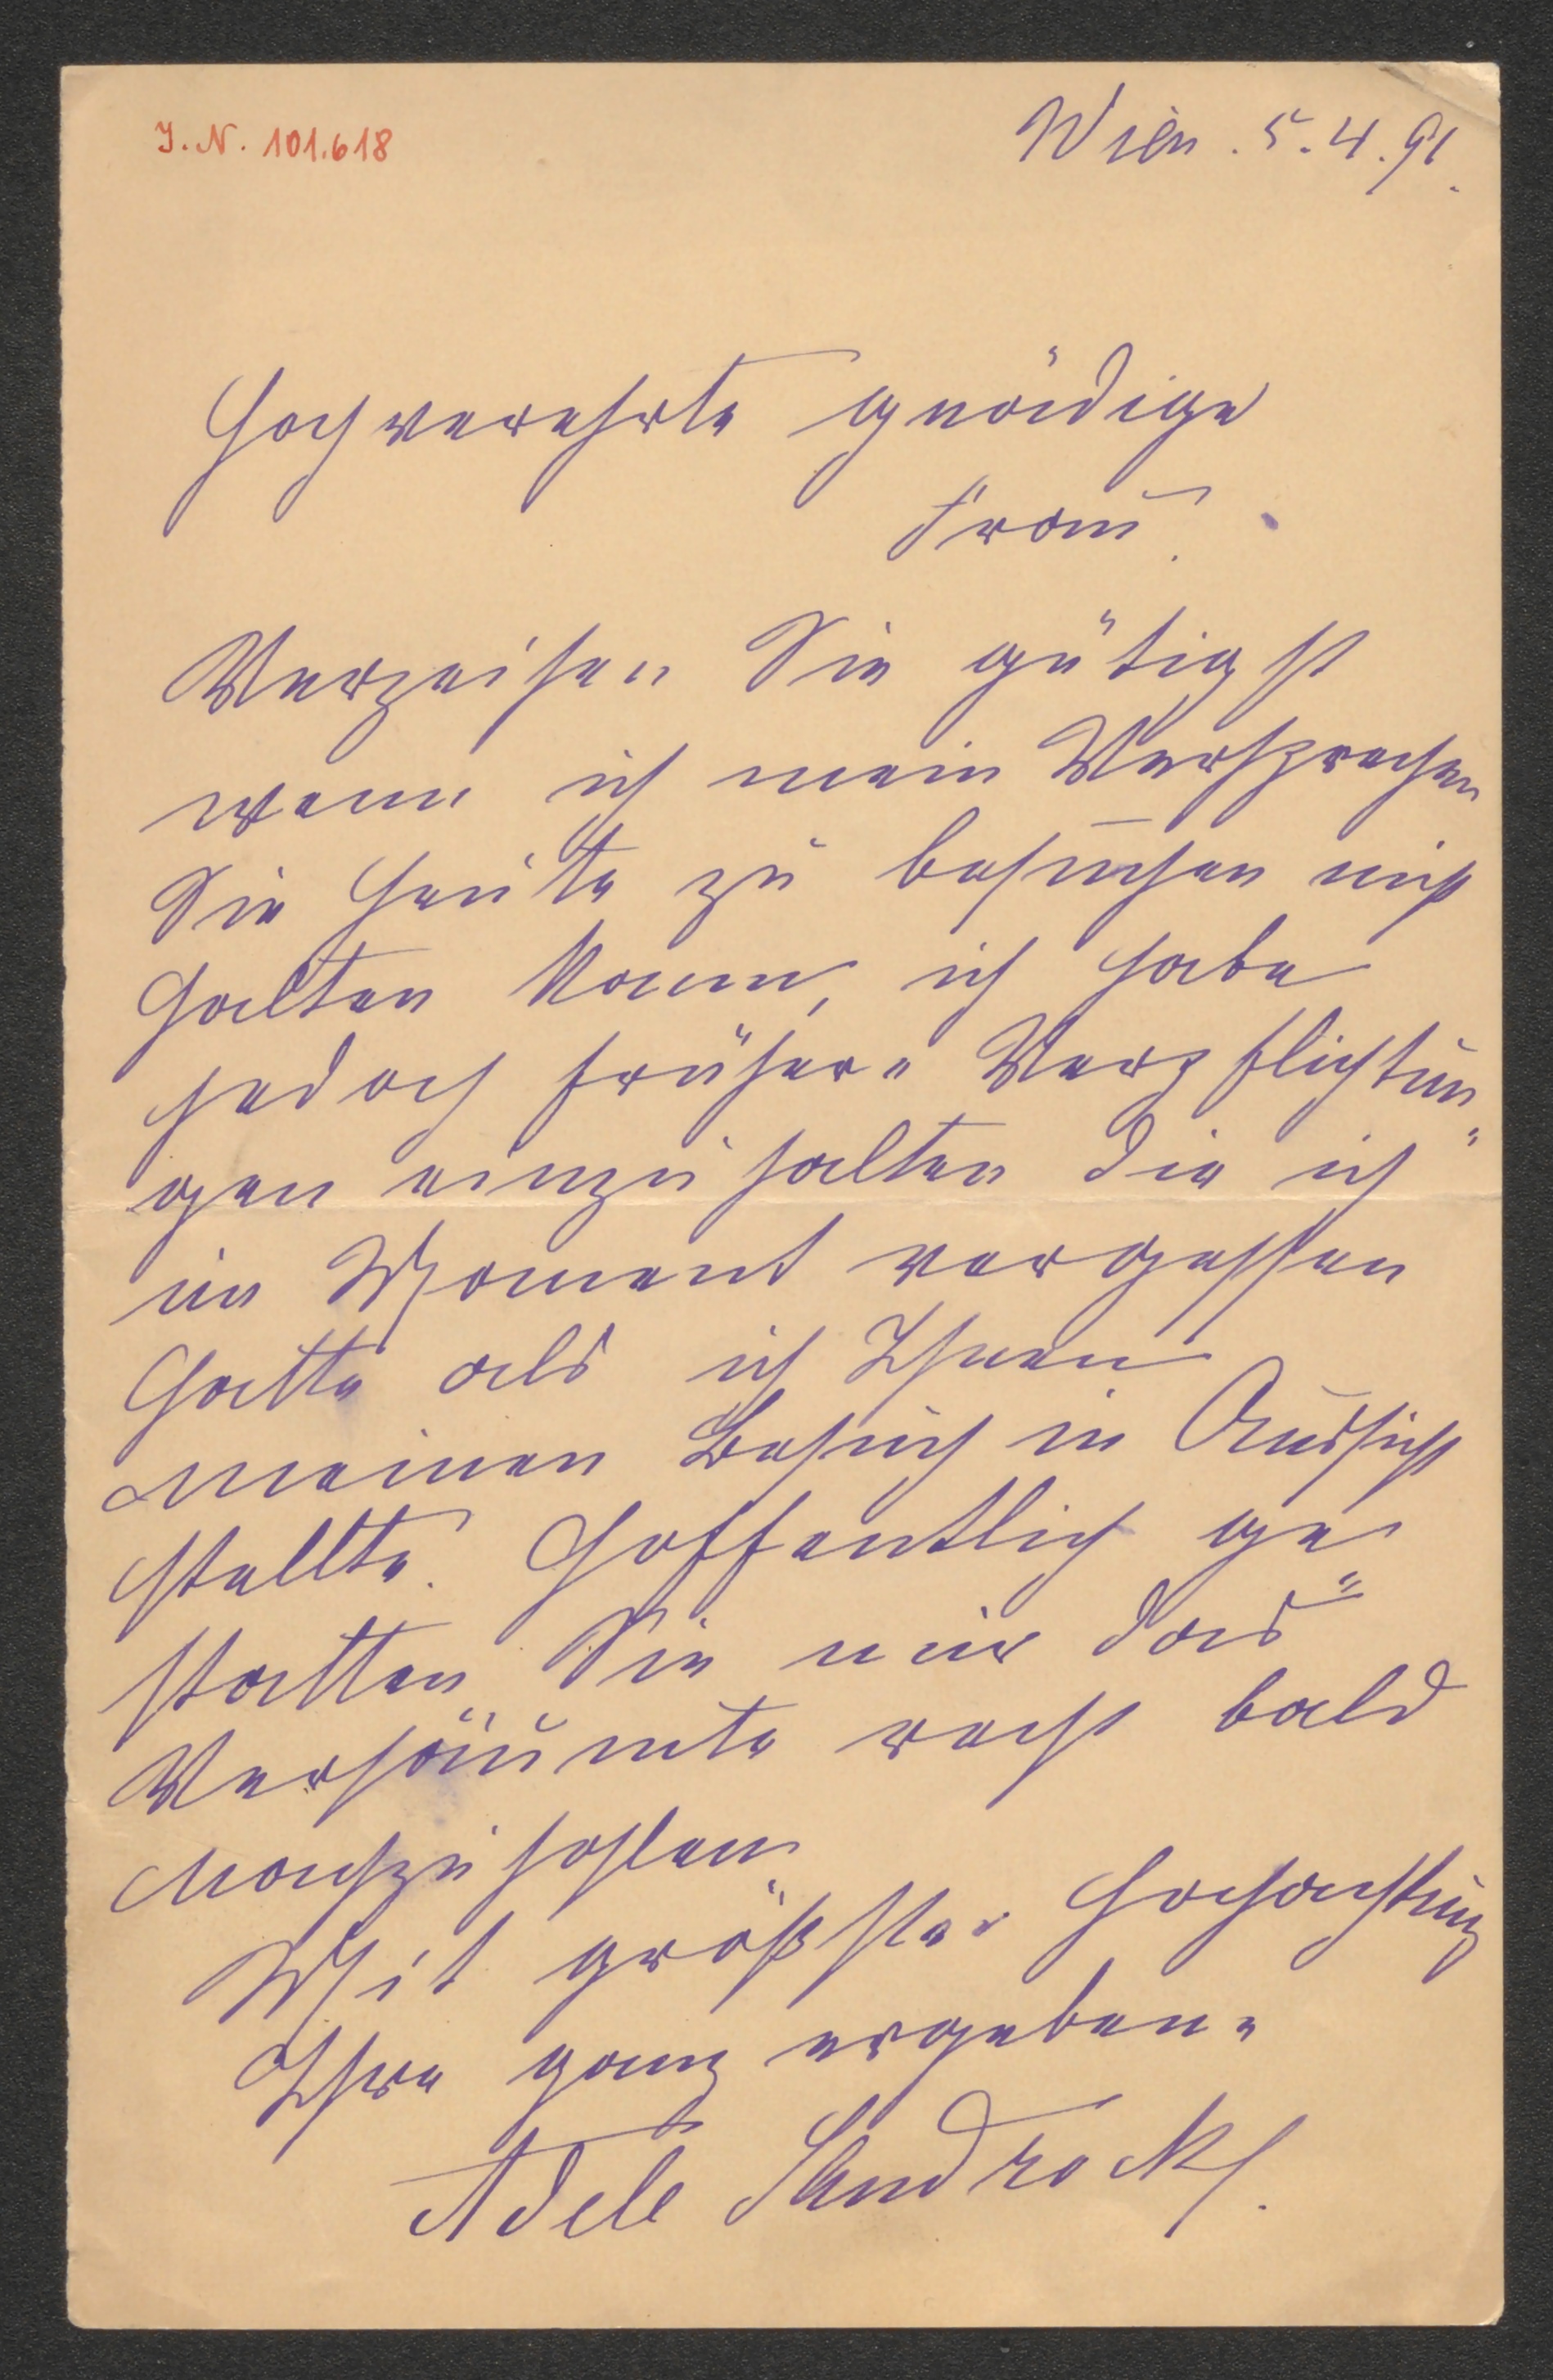 J. N. 101.618
Wien. 5. 4. 91.
Hochverehrte gnädige
Frau.
Verzeihen Sie gütigst
wenn ich mein Versprechen
Sie heute zu besuchen nicht
halten kann, ich habe
jedoch frühere Verpflichtun"
gen einzuhalten die ich
im Moment vergessen
hatte als ich Ihnen
meinen Besuch in Aussicht
stellte. Hoffentlich ge"
statten Sie mir das
Versäumte recht bald
nachzuhohlen
Mit größster Hochachtung
Ihre ganz ergebene
Adele Sandrock.